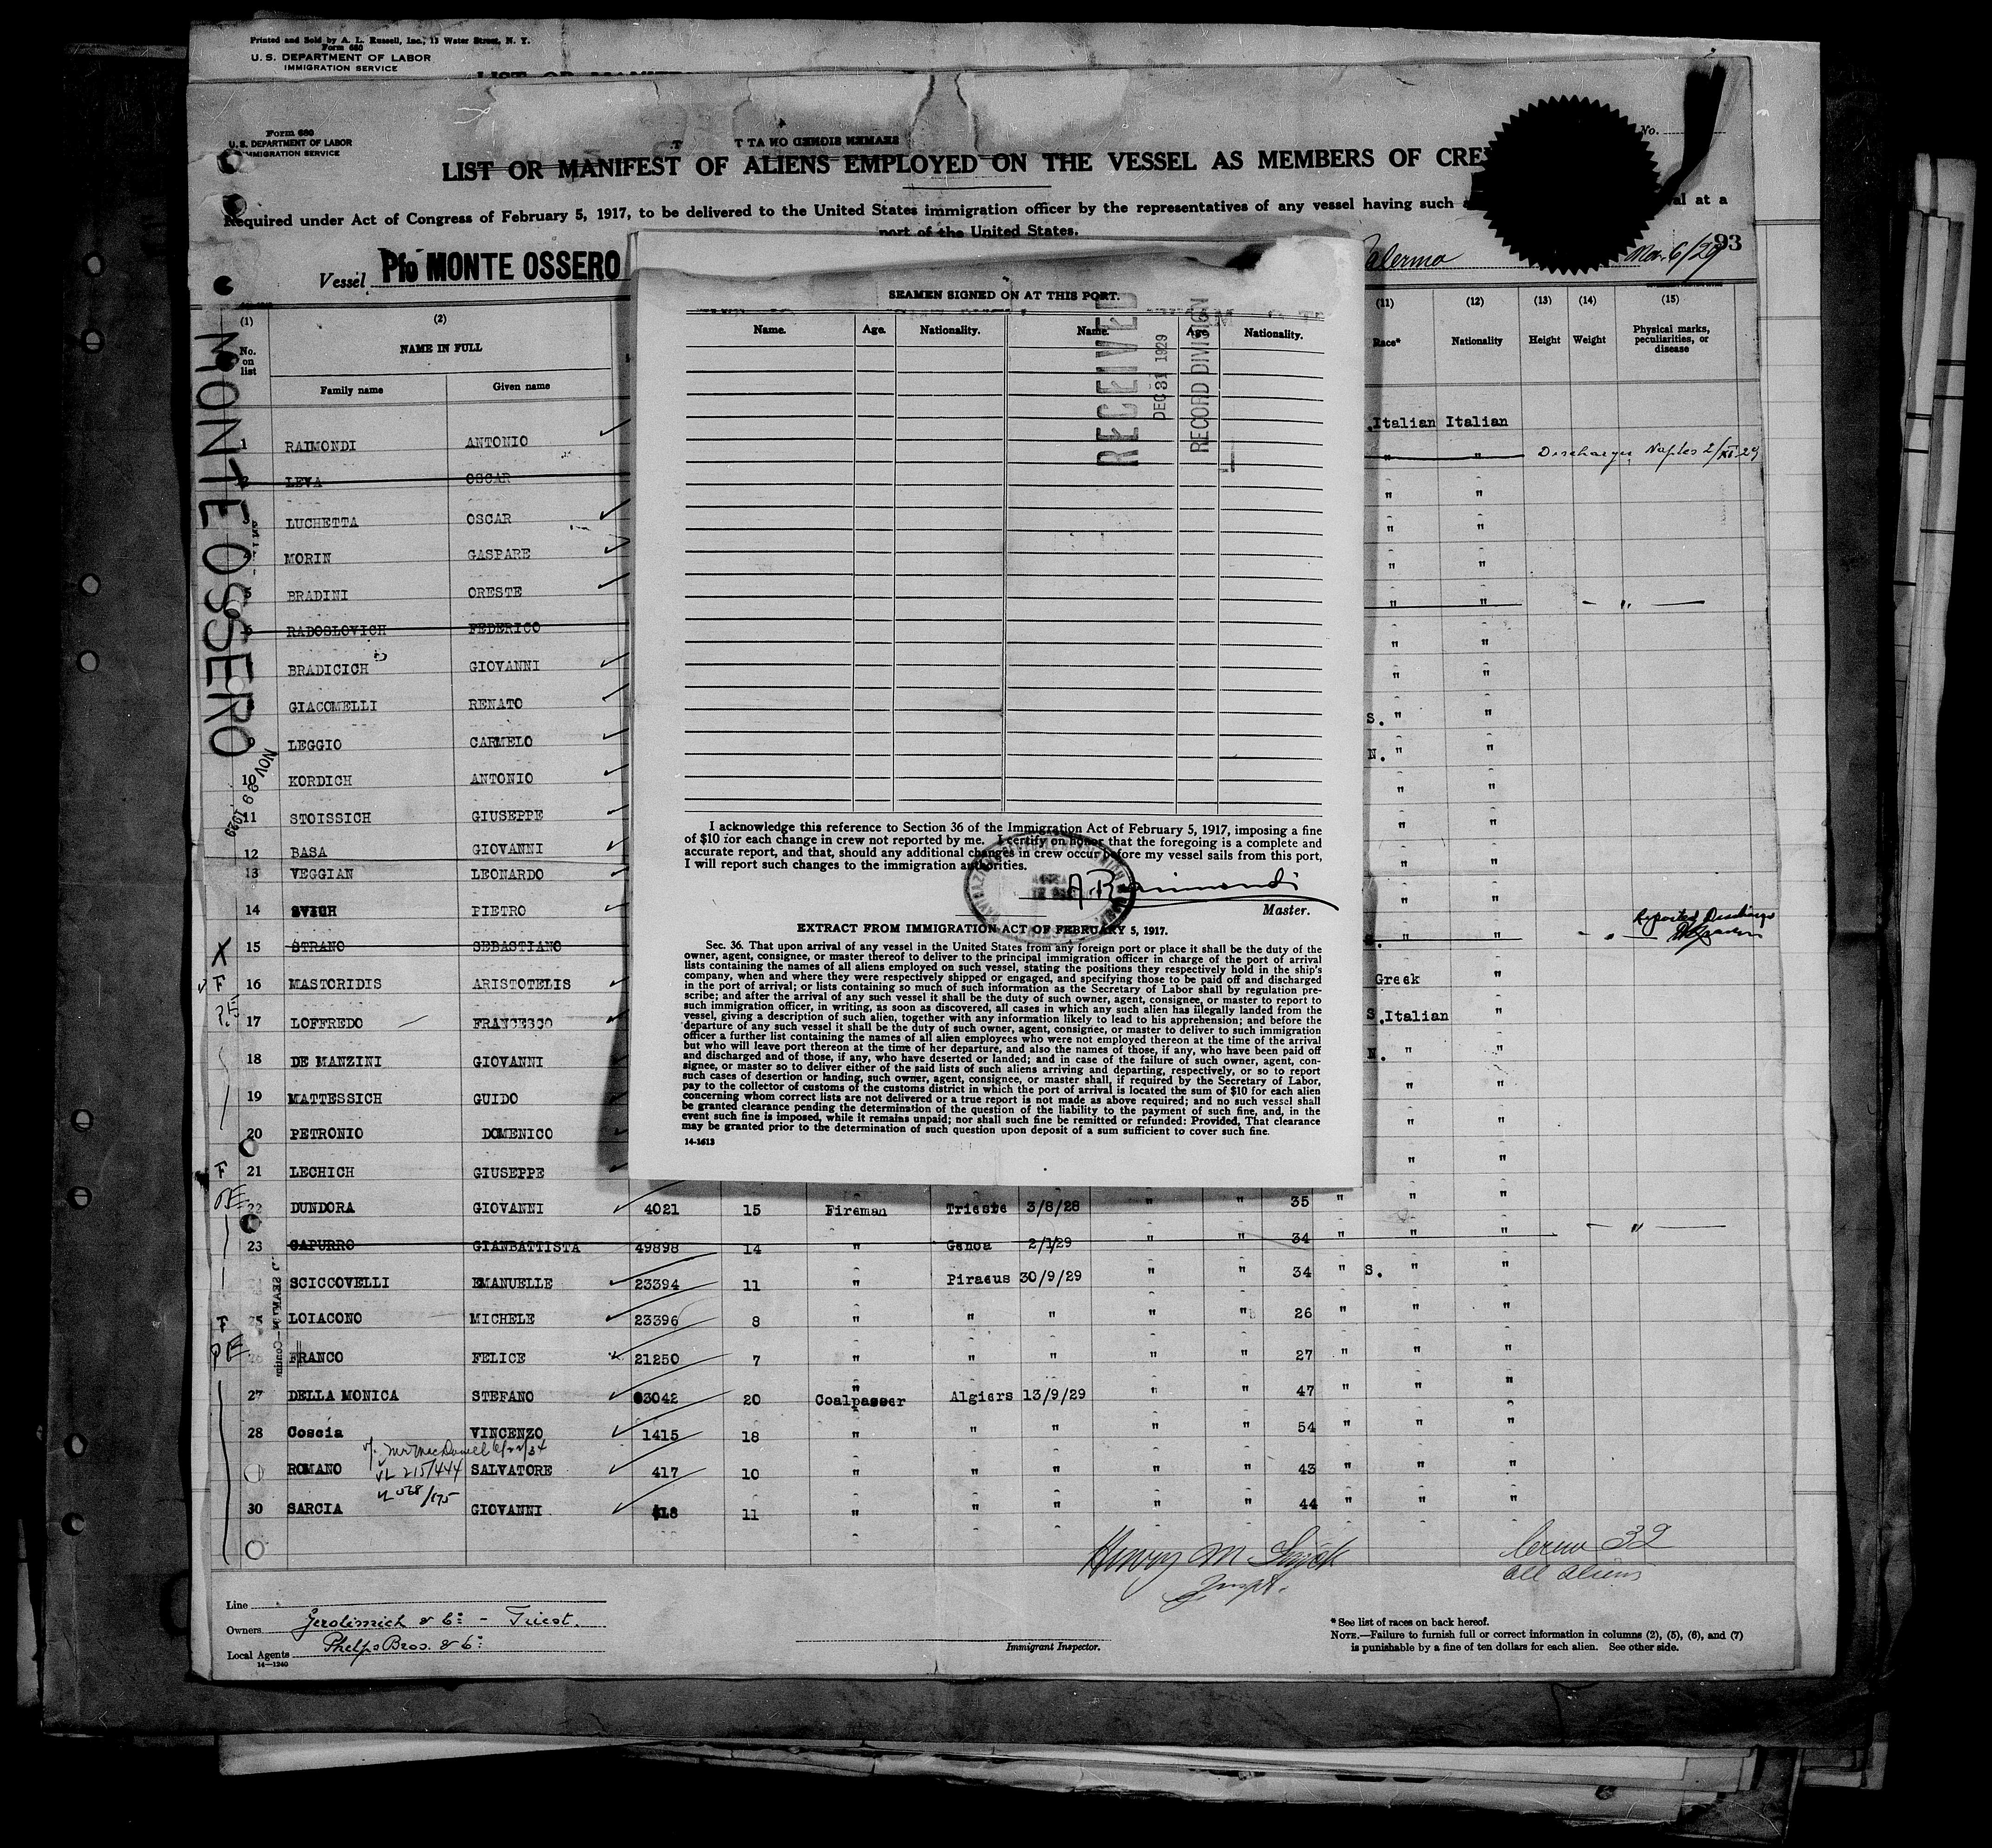 Printed and Sold by A. L. Russell, Inc., 13 Water Street, N. Y.
Form 680
U. S. DEPARTMENT OF LABOR
IMMIGRATION SERVICE
Form 680
U. S. DEPARTMENT OF LABOR
IMMIGRATION SERVICE
No.
SEAMEN SIGNED ON AT T
LIST OR MANIFEST OF ALIENS EMPLOYED ON THE VESSEL AS MEMBERS OF CRE
Required under Act of Congress of February 5, 1917, to be delivered to the United States immigration officer by the representatives of any vessel having such a al at a
port of the United States.
93
Vessel Pfo MONTE OSSERO alermo Nov. 6/29
MONTE OSSERO
NOV 29 1929
(1) (2) (11) (12) (13) (14) (15)
No. on list NAME IN FULL Race* Nationality Height Weight Physical marks, peculiarities, or disease
Family name Given name
1 RAIMONDI ANTONIO Italian Italian
2 LEVA OSCAR " " Discharged Naples 2/XI 29
3 LUCHETTA OSCAR " "
MORIN GASPARE " "
5 BRADINI ORESTE " "
6 RADOSLOVICH FEDERICO " " "
BRADICICH GIOVANNI " "
GIACOMELLI RENATO " "
LEGGIO CARMELO S. " "
10 KORDICH ANTONIO N. " "
11 STOISSICH GIUSEPPE " "
12 BASA GIOVANNI " "
13 VEGGIAN LEONARDO " "
14 SVICH PIETRO " "
X 15 STRANO SEBASTIANO S. " " Reported Discharge
F 16 MASTORIDIS ARISTOTELIS Greek "
P.E 17 LOFFREDO FRANCESCO S. Italian "
18 DE MANZINI GIOVANNI N. " "
19 MATTESSICH GUIDO " "
20 PETRONIO DOMENICO " "
F 21 LECHICH GIUSEPPE " "
PE 22 DUNDORA GIOVANNI 4021 15 Fireman Trieste 3/8/28 " " 35 " " "
23 CAPURRO GIANBATTISTA 49898 14 " Genoa 2/1/29 " " 34 " " " "
SCICCOVELLI EMANUELLE 23394 11 " Piraeus 30/9/29 " " 34 " S. " "
F 25 LOIACONO MICHELE 23396 8 " " " " " 26 " " "
PE 26 FRANCO FELICE 21250 7 " " " " " 27 " " "
27 DELLA MONICA STEFANO 63042 20 Coalpasser Algiers 13/9/29 " " 47 " " "
28 Coscia VINCENZO 1415 18 " " " " " 54 " " "
ROMANO SALVATORE 417 10 " " " " " 43 " " "
30 SARCIA GIOVANNI 418 11 " " " " " 44 " " "
SEAMEN SIGNED ON AT THIS PORT.
Name. Age. Nationality. Name. Age. Nationality.
RECEIVED
DEC 31 1929
RECORD DIVISION
I acknowledge this reference to Section 36 of the Immigration Act of February 5, 1917, imposing a fine
of $10 for each change in crew not reported by me. I certify on honor that the foregoing is a complete and
accurate report, and that, should any additional changes in crew occur before my vessel sails from this port,
I will report such changes to the immigration authorities.
A. Raimondi
Master.
EXTRACT FROM IMMIGRATION ACT OF FEBRUARY 5, 1917.
Sec. 36. That upon arrival of any vessel in the United States from any foreign port or place it shall be the duty of the
owner, agent, consignee, or master thereof to deliver to the principal immigration officer in charge of the port of arrival
lists containing the names of all aliens employed on such vessel, stating the positions they respectively hold in the ship's
company, when and where they were respectively shipped or engaged, and specifying those to be paid off and discharged
in the port of arrival; or lists containing so much of such information as the Secretary of Labor shall by regulation pre-
scribe; and after the arrival of any such vessel it shall be the duty of such owner, agent, consignee, or master to report to
such immigration officer, in writing, as soon as discovered, all cases in which any such alien has illegally landed from the
vessel, giving a description of such alien, together with any information likely to lead to his apprehension; and before the
departure of any such vessel it shall be the duty of such owner, agent, consignee, or master to deliver to such immigration
officer a further list containing the names of all alien employees who were not employed thereon at the time of the arrival
but who will leave port thereon at the time of her departure, and also the names of those, if any, who have been paid off
and discharged and of those, if any, who have deserted or landed; and in case of the failure of such owner, agent, con-
signee, or master so to deliver either of the said lists of such aliens arriving and departing, respectively, or so to report
such cases of desertion or landing, such owner, agent, consignee, or master shall, if required by the Secretary of Labor,
pay to the collector of customs of the customs district in which the port of arrival is located the sum of $10 for each alien
concerning whom correct lists are not delivered or a true report is not made as above required; and no such vessel shall
be granted clearance pending the determination of the question of the liability to the payment of such fine, and, in the
event such fine is imposed, while it remains unpaid; nor shall such fine be remitted or refunded: Provided, That clearance
may be granted prior to the determination of such question upon deposit of a sum sufficient to cover such fine.
14-1613
Crew 32
all aliens
Line
Owners Gerolimich & Co: - Triest.
Local Agents Phelps Bros. & Co:
14-1240
Immigrant Inspector.
* See list of races on back hereof.
NOTE.—Failure to furnish full or correct information in columns (2), (5), (6), and (7)
is punishable by a fine of ten dollars for each alien. See other side.